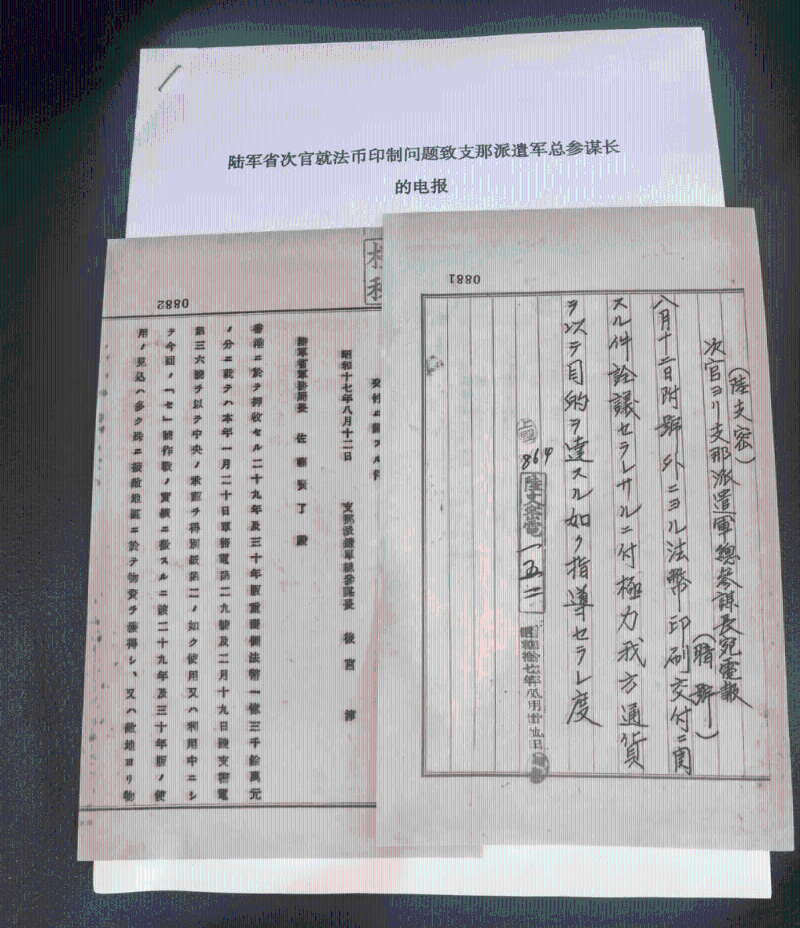 陆军省次官就法币印制问题致支那派遣军总参谋长
的电报
0881
(陸支密)
次官ヨリ支那派遣軍總參謀長宛電報
(暗號)
八月十二日附號外ニヨル法幣印刷交付ニ関
スル件詮議セラレサルニ付極力我方通貨
ヲ以テ目的ヲ達スル如ク指導セラレ度
864
陸支密電一五二
0882
昭和十七年八月十二日
支那派遣軍總參謀長 後宮淳
陸軍省軍務局長 佐藤賢了殿
香港ニ於テ押收セル二十九年及三十年版重慶側法幣一億三千餘萬元
ノ分ニ就テハ本年一月二十日軍務電第二九號及二月十九日陸支密電
第三六號ヲ以テ中央ノ承認ヲ得別紙第二ノ如ク使用又ハ利用中ニシ
テ今回ノ「セ」號作戰ノ實績ニ徵スルニ該二十九年及三十年版ノ使
用ノ見込ハ多ク殊ニ接敵地區ニ於テ物資ヲ獲得シ、又ハ敵地ヨリ物